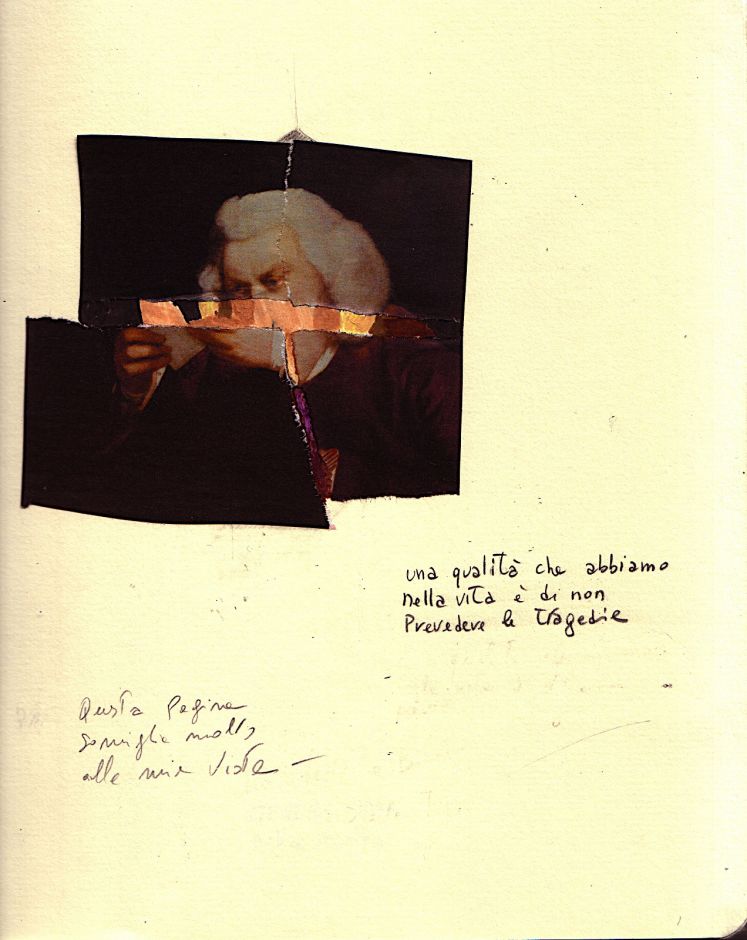 una qualità che abbiamo
nella vita è di non
Prevedere le tragedie
Questa pagina
somiglia molto
alla mia vista –